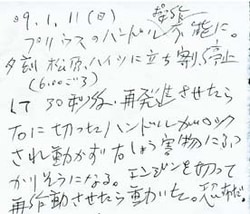 '09.1.11(日)
プリウスのハンドル操作不能に。
夕刻 松原、ハイツに立ち割り停止
(6:00ごろ)
して30秒後、再発進させたら
右に切ったハンドルがロック
され動かず右しょう害物にぶつ
かりそうになる。エンジンを切って
再作動させたら動いた。恐怖だ。